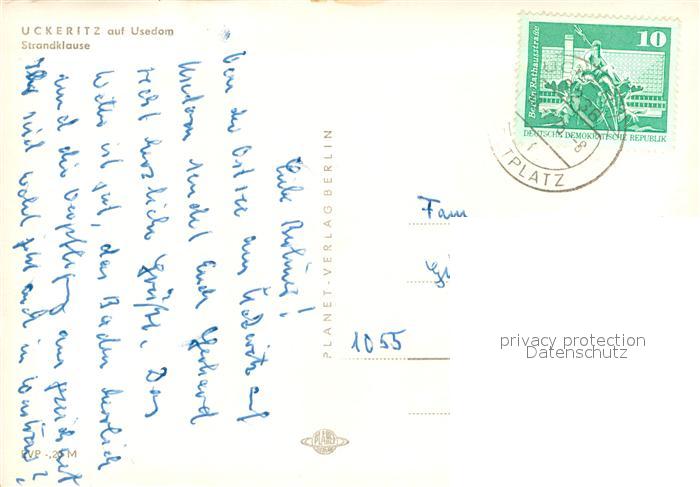 UCKERITZ auf Usedom
Strandklause
Liebe
Von der Ostsee aus Ückeritz auf
Usedom sendet Euch Gerhard
recht herzliche Grüße. Das
Wetter ist gut, das Baden herrlich
und die Verpflegung ausgezeichnet
Ihr seid wohl jetzt auch in
EVP -,20 M
PLANET-VERLAG BERLIN
PLANET
Berlin, Rathausstraße
10
DEUTSCHE DEMOKRATISCHE REPUBLIK
TPLATZ
Fam
1055
privacy protection
Datenschutz